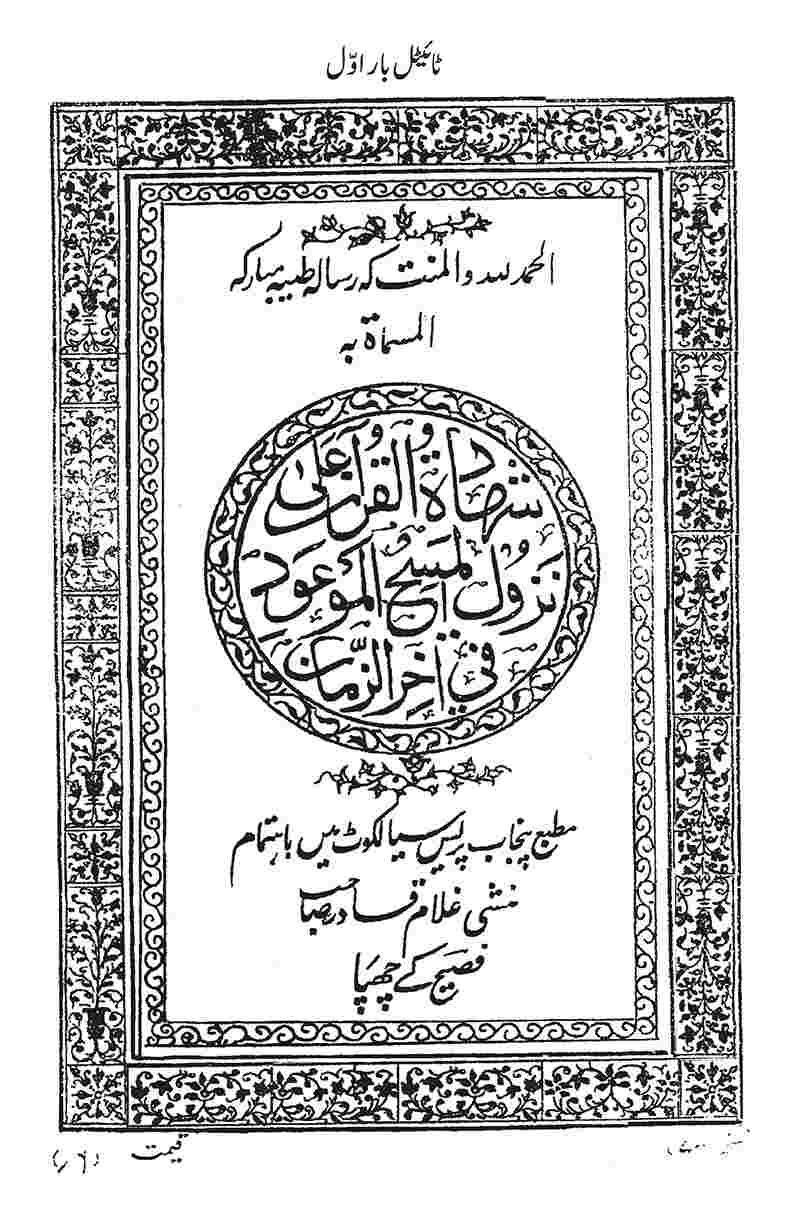 ٹائیٹل بار اوّل
الحمد للہ والمنت کہ رسالہ طیبہ مبارکہ
المسماۃ بہ
شهادة القرآن على
نزول المسيح الموعود
في آخر الزمان
مطبع پنجاب پریس سیالکوٹ میں باہتمام
منشی غلام قادر صاحب
فصیح کے چھپا
قیمت